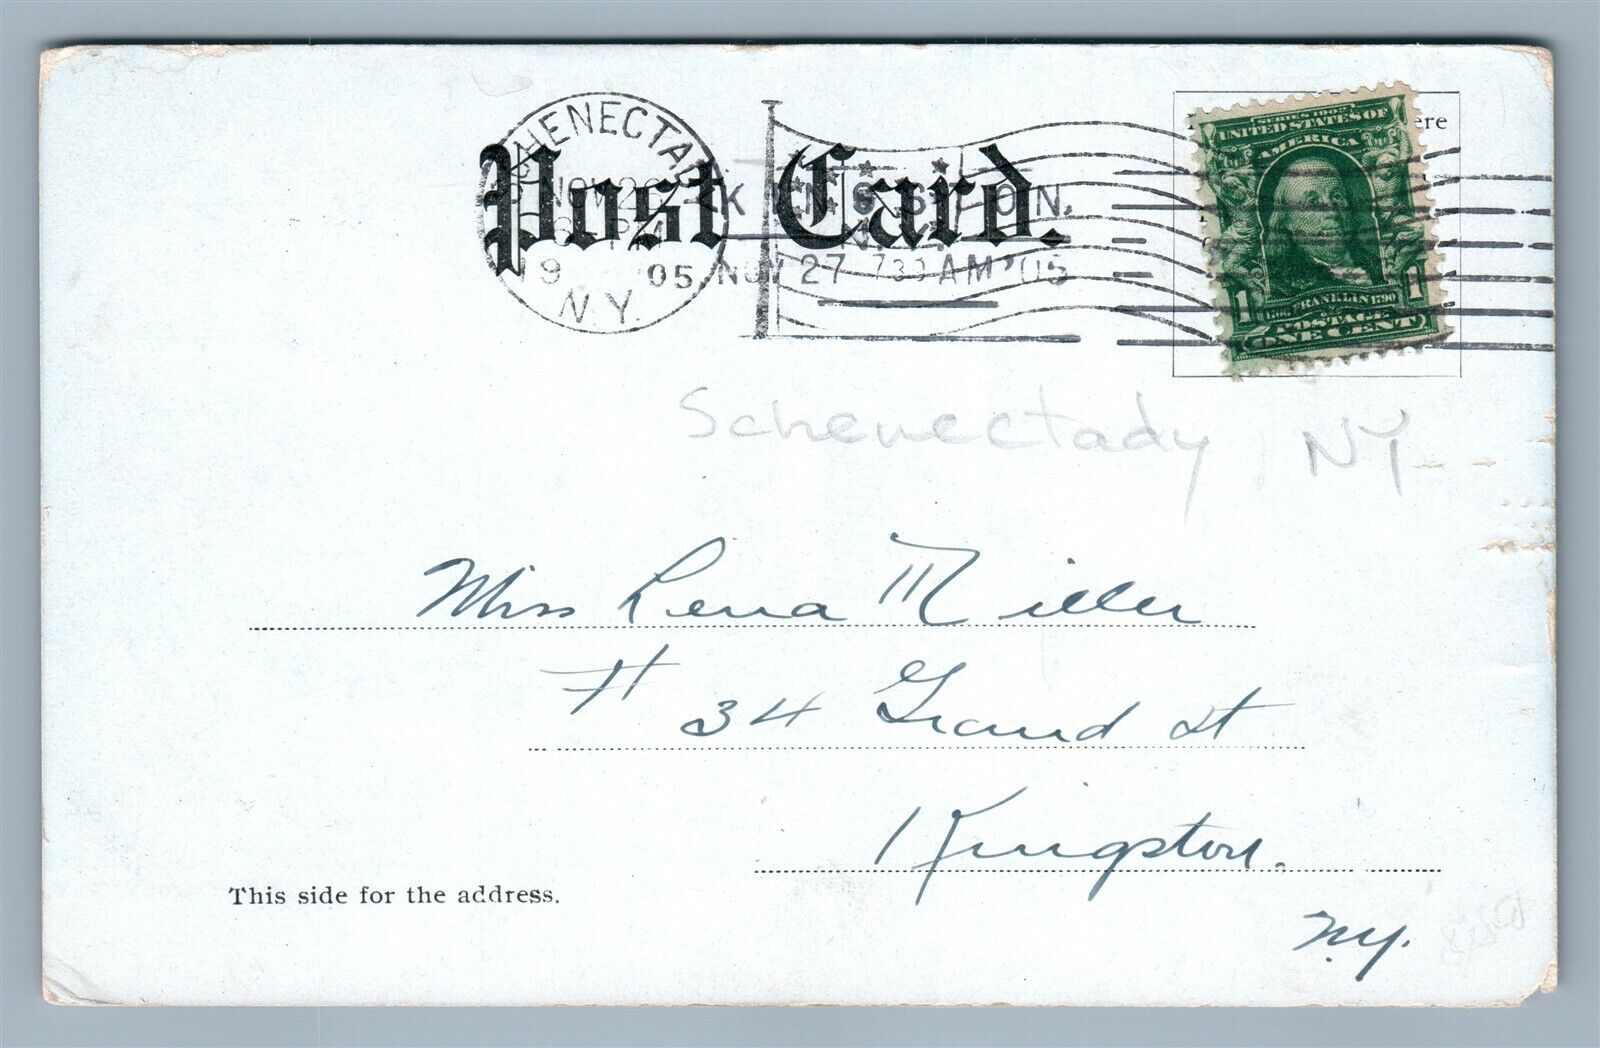 Post Card.
SCHENECTADY
NOV 26
1905
N.Y.
KINGSTON,
NOV 27 730 AM '05
ere
SERIES 1902
UNITED STATES OF
AMERICA
FRANKLIN 1790
1 POSTAGE 1
ONE CENT
Schenectady, NY
Miss Lena Miller
# 34 Grand St
Kingston.
N.Y.
This side for the address.